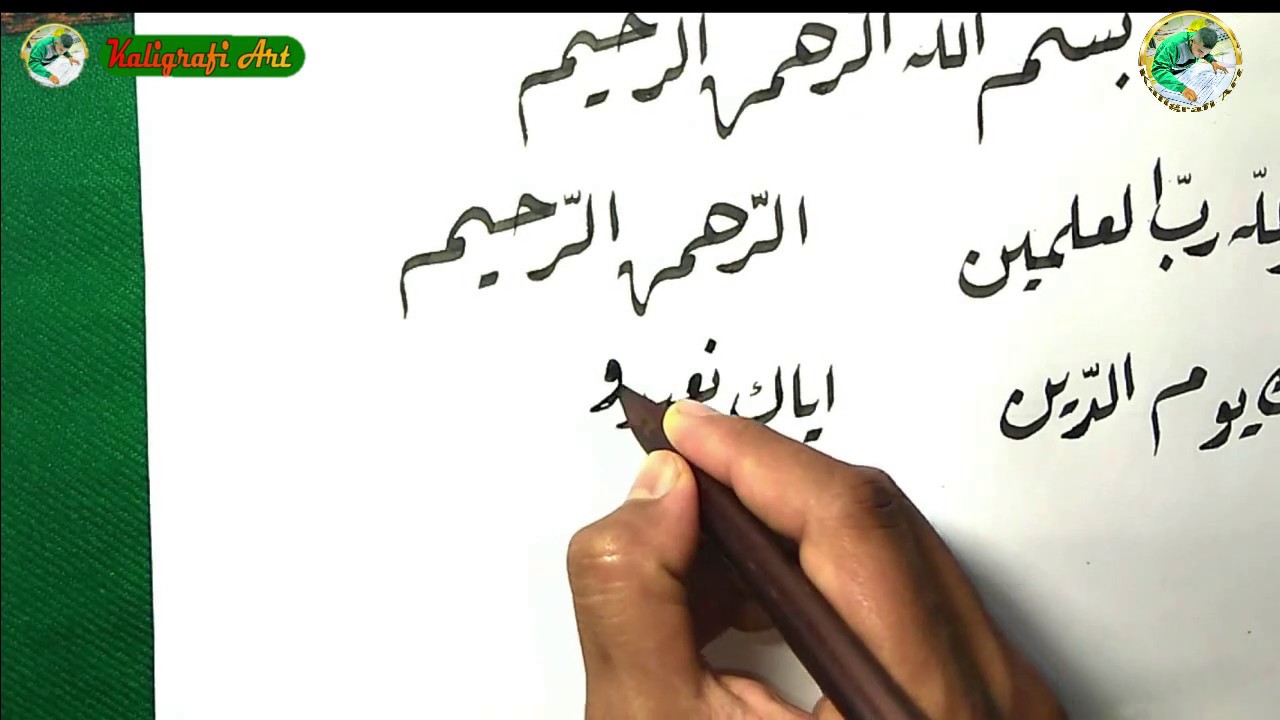 Kaligrafi Art
بسم الله الرحمن الرحيم
لله ربّ العلمين الرّحمن الرّحيم
يوم الدّين اياك نعبد و